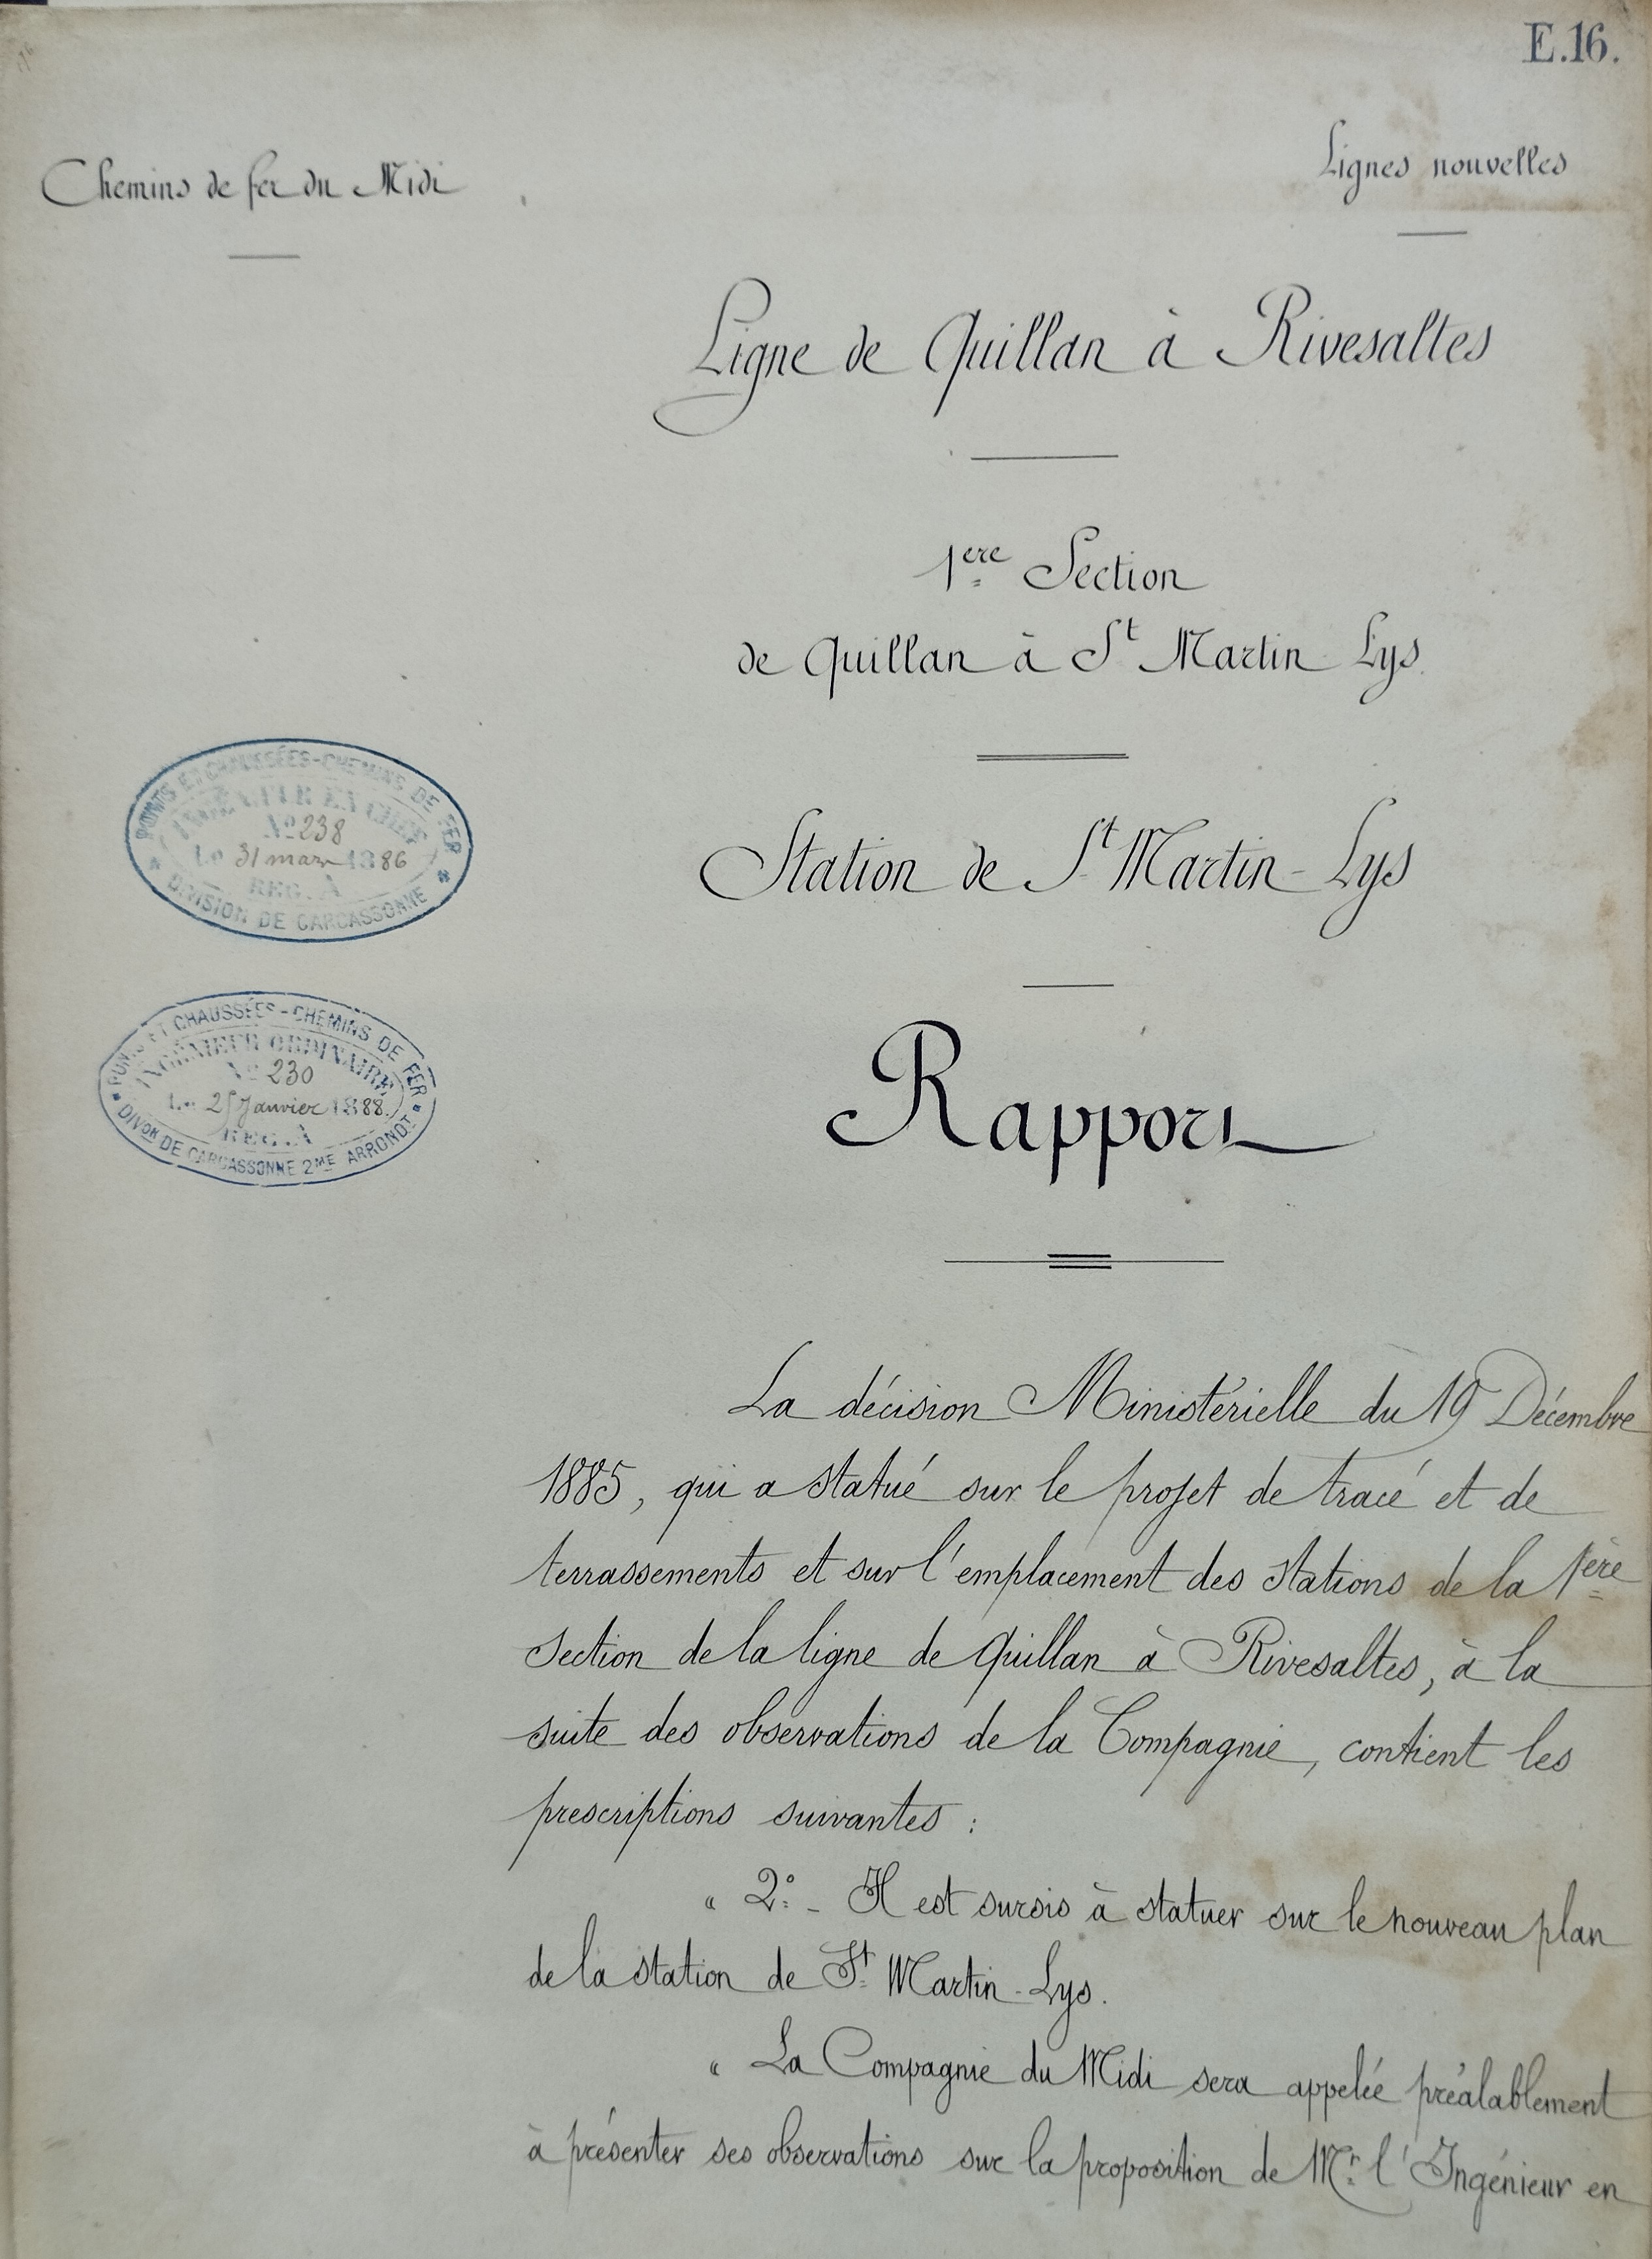 E.16.
Chemins de fer du Midi
Lignes nouvelles
Ligne de Quillan à Rivesaltes
1ère Section
de Quillan à St Martin Lys
Station de St Martin-Lys
PONTS ET CHAUSSÉES-CHEMINS DE FER
INGÉNIEUR EN CHEF
No 238
Le 31 mars 1886
REG. A
DIVISION DE CARCASSONNE
PONTS ET CHAUSSÉES-CHEMINS DE FER
INGÉNIEUR ORDINAIRE
No 230
Le 25 Janvier 1888.
REG. A
DIVon DE CARCASSONNE 2ME ARRONDT
Rapport
La décision Ministérielle du 19 Décembre
1885, qui a statué sur le projet de tracé et de
terrassements et sur l'emplacement des stations de la 1ère
section de la ligne de Quillan à Rivesaltes, à la
suite des observations de la Compagnie, contient les
prescriptions suivantes :
" 2° - Il est sursis à statuer sur le nouveau plan
de la station de St Martin-Lys.
" La Compagnie du Midi sera appelée préalablement
à présenter ses observations sur la proposition de Mr l'Ingénieur en